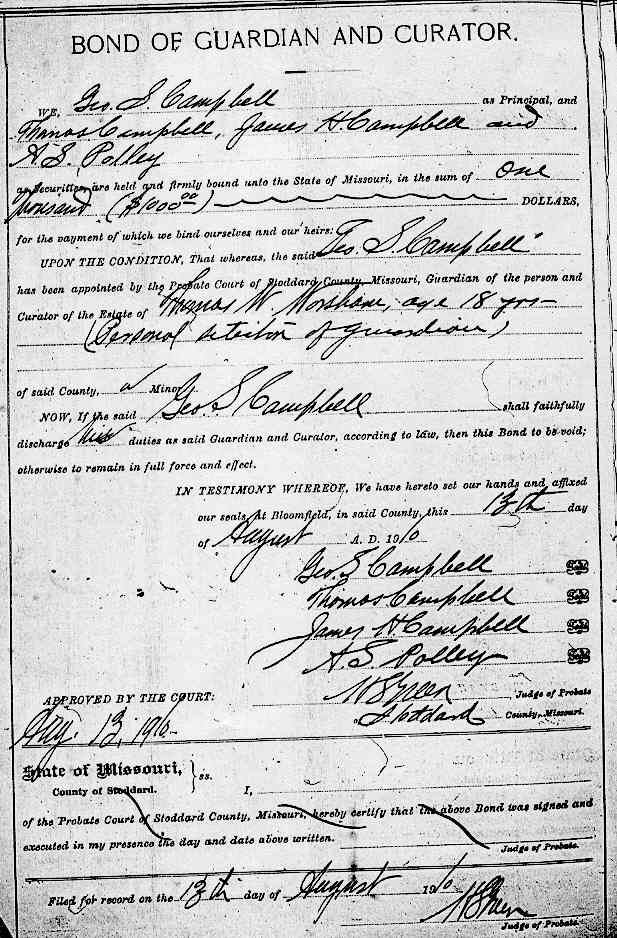 BOND OF GUARDIAN AND CURATOR.
WE, Geo. S. Campbell as Principal, and
Thomas Campbell, James H. Campbell and
A. S. Polley
as Securities, are held and firmly bound unto the State of Missouri, in the sum of One
Thousand ($1000.00) DOLLARS,
for the payment of which we bind ourselves and our heirs:
UPON THE CONDITION, That whereas, the said Geo. S. Campbell
has been appointed by the Probate Court of Stoddard County, Missouri, Guardian of the person and
Curator of the Estate of Thomas W Worsham, age 18 yrs
(Personal of guardian)
of said County, a Minor.
NOW, If the said Geo. S Campbell shall faithfully
discharge his duties as said Guardian and Curator, according to law, then this Bond to be void;
otherwise to remain in full force and effect.
IN TESTIMONY WHEREOF, We have hereto set our hands and affixed
our seals, At Bloomfield, in said County, this 13th day
of August A. D. 1910
Geo. S Campbell
Thomas Campbell
James H. Campbell
A S Polley
APPROVED BY THE COURT: Judge of Probate
Aug. 13, 1910 Stoddard County, Missouri.
State of Missouri, } ss.
County of Stoddard. I,
of the Probate Court of Stoddard County, Missouri, hereby certify that the above Bond was signed and
executed in my presence the day and date above written.
Judge of Probate.
Filed for record on the 13th day of August 1910
Judge of Probate.